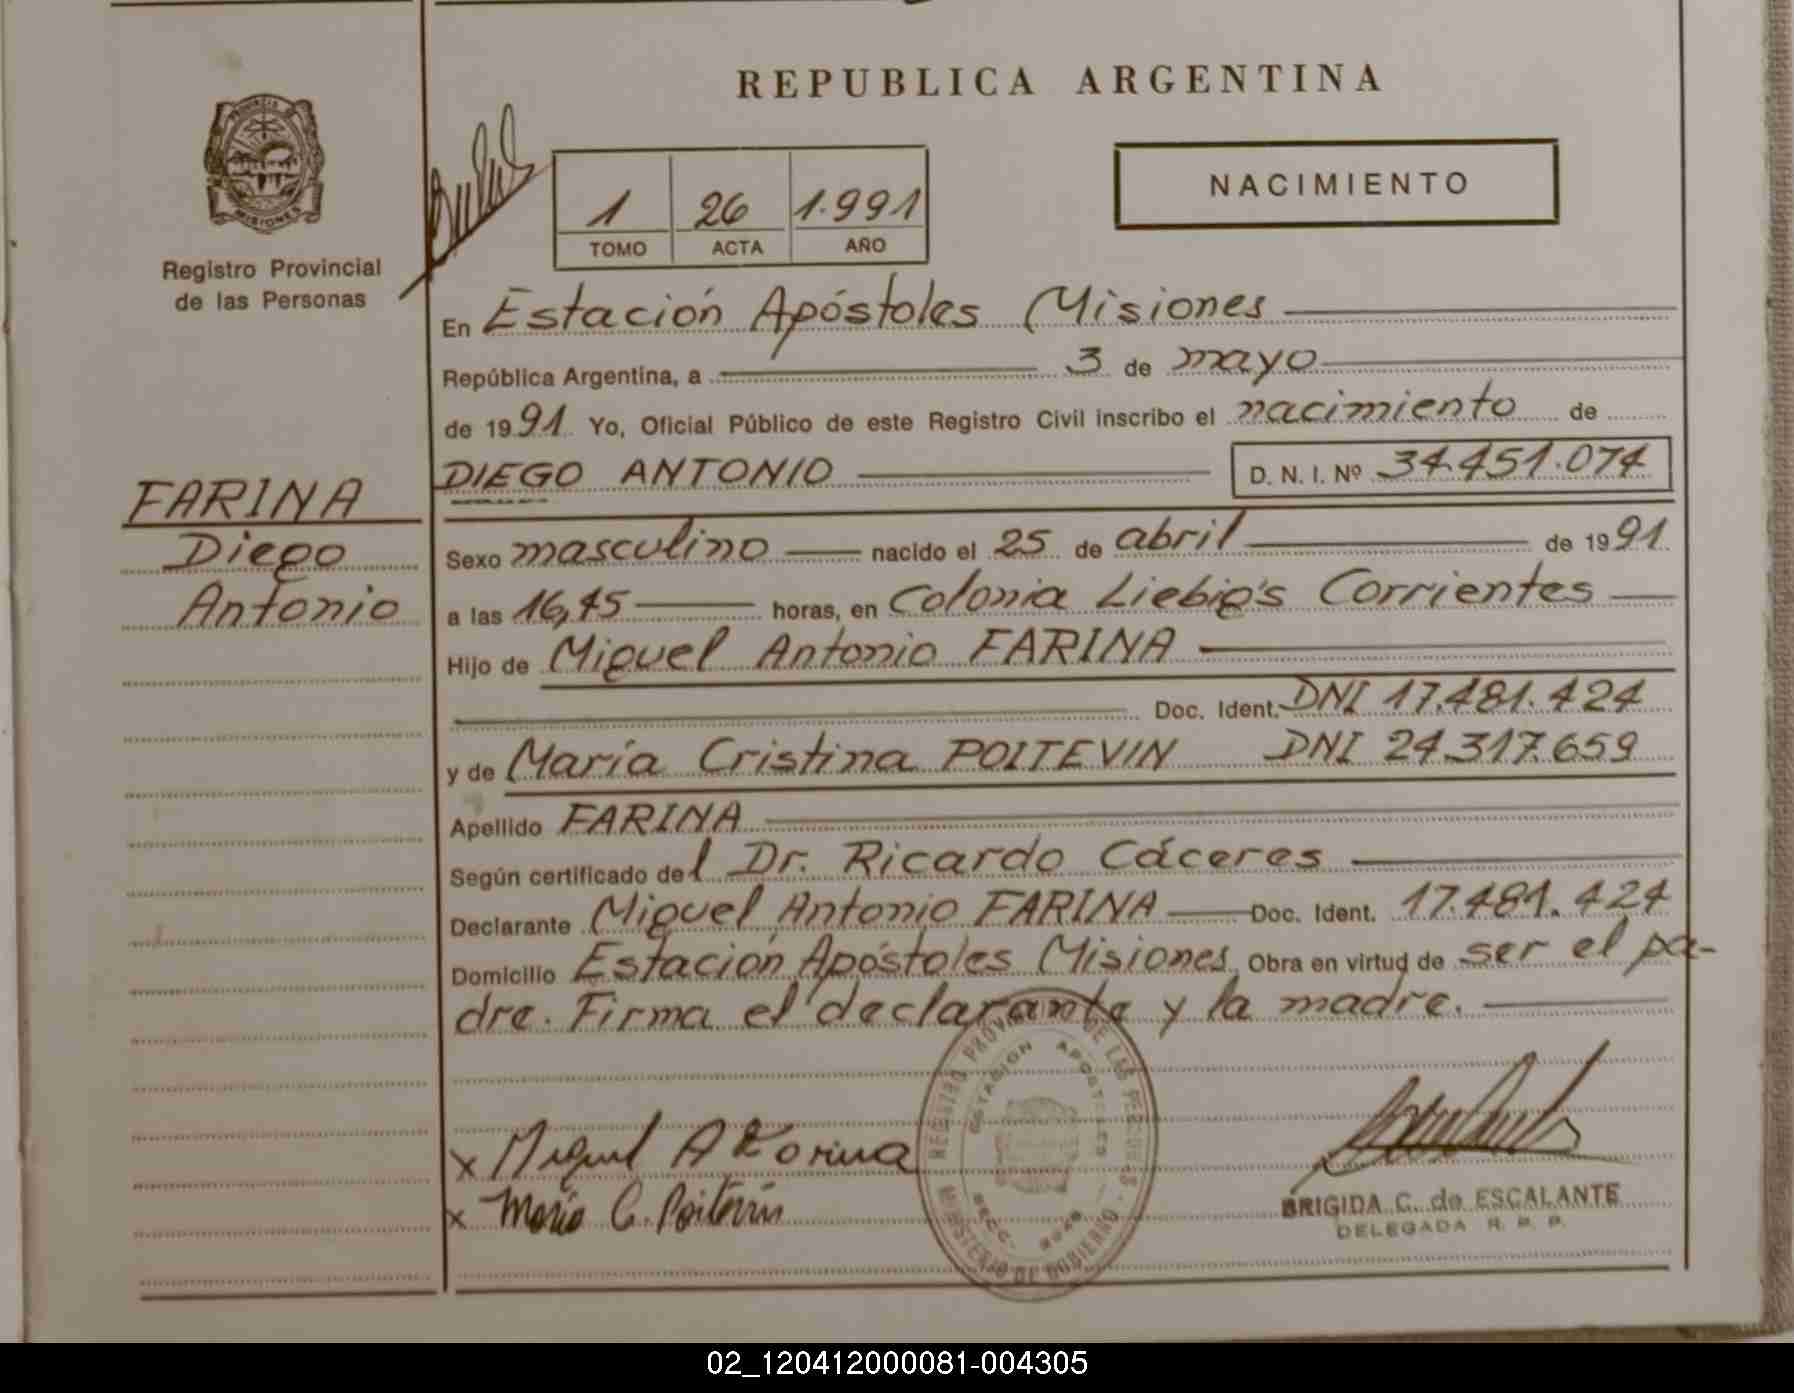 REPUBLICA ARGENTINA
PROVINCIA DE
MISIONES
Registro Provincial
de las Personas
1 26 1.991
TOMO ACTA AÑO
NACIMIENTO
En Estación Apóstoles Misiones
República Argentina, a 3 de mayo
de 1991 Yo, Oficial Público de este Registro Civil inscribo el nacimiento de
DIEGO ANTONIO D. N. I. Nº 34.451.074
FARINA
Diego
Antonio
Sexo masculino nacido el 25 de abril de 1991
a las 16,45 horas, en Colonia Liebig's Corrientes
Hijo de Miguel Antonio FARINA
Doc. Ident. DNI 17.481.424
y de María Cristina POITEVIN DNI 24.317.659
Apellido FARINA
Según certificado del Dr. Ricardo Cáceres
Declarante Miguel Antonio FARINA Doc. Ident. 17.481.424
Domicilio Estación Apóstoles Misiones Obra en virtud de ser el pa-
dre. Firma el declarante y la madre.
REGISTRO PROVINCIAL DE LAS PERSONAS
ESTACION APOSTOLES
MINISTERIO DE GOBIERNO
x Miguel A Farina
x María C. Poitevin
BRIGIDA C. de ESCALANTE
DELEGADA R. P. P.
02_120412000081-004305